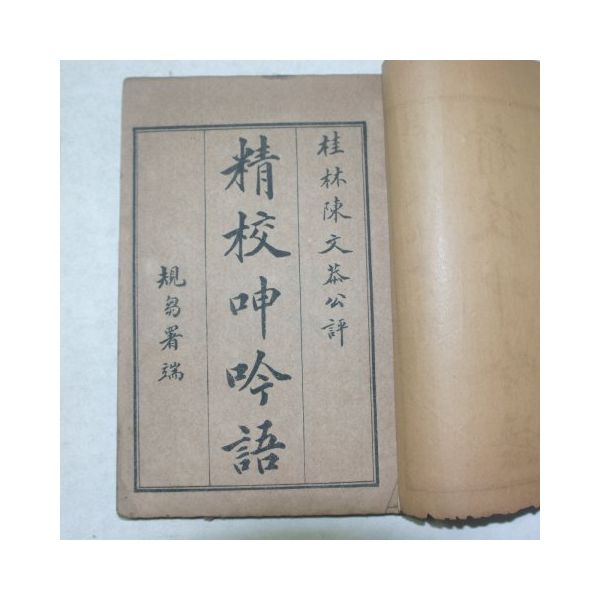 桂林陳文恭公評
精校呻吟語
規芻署端